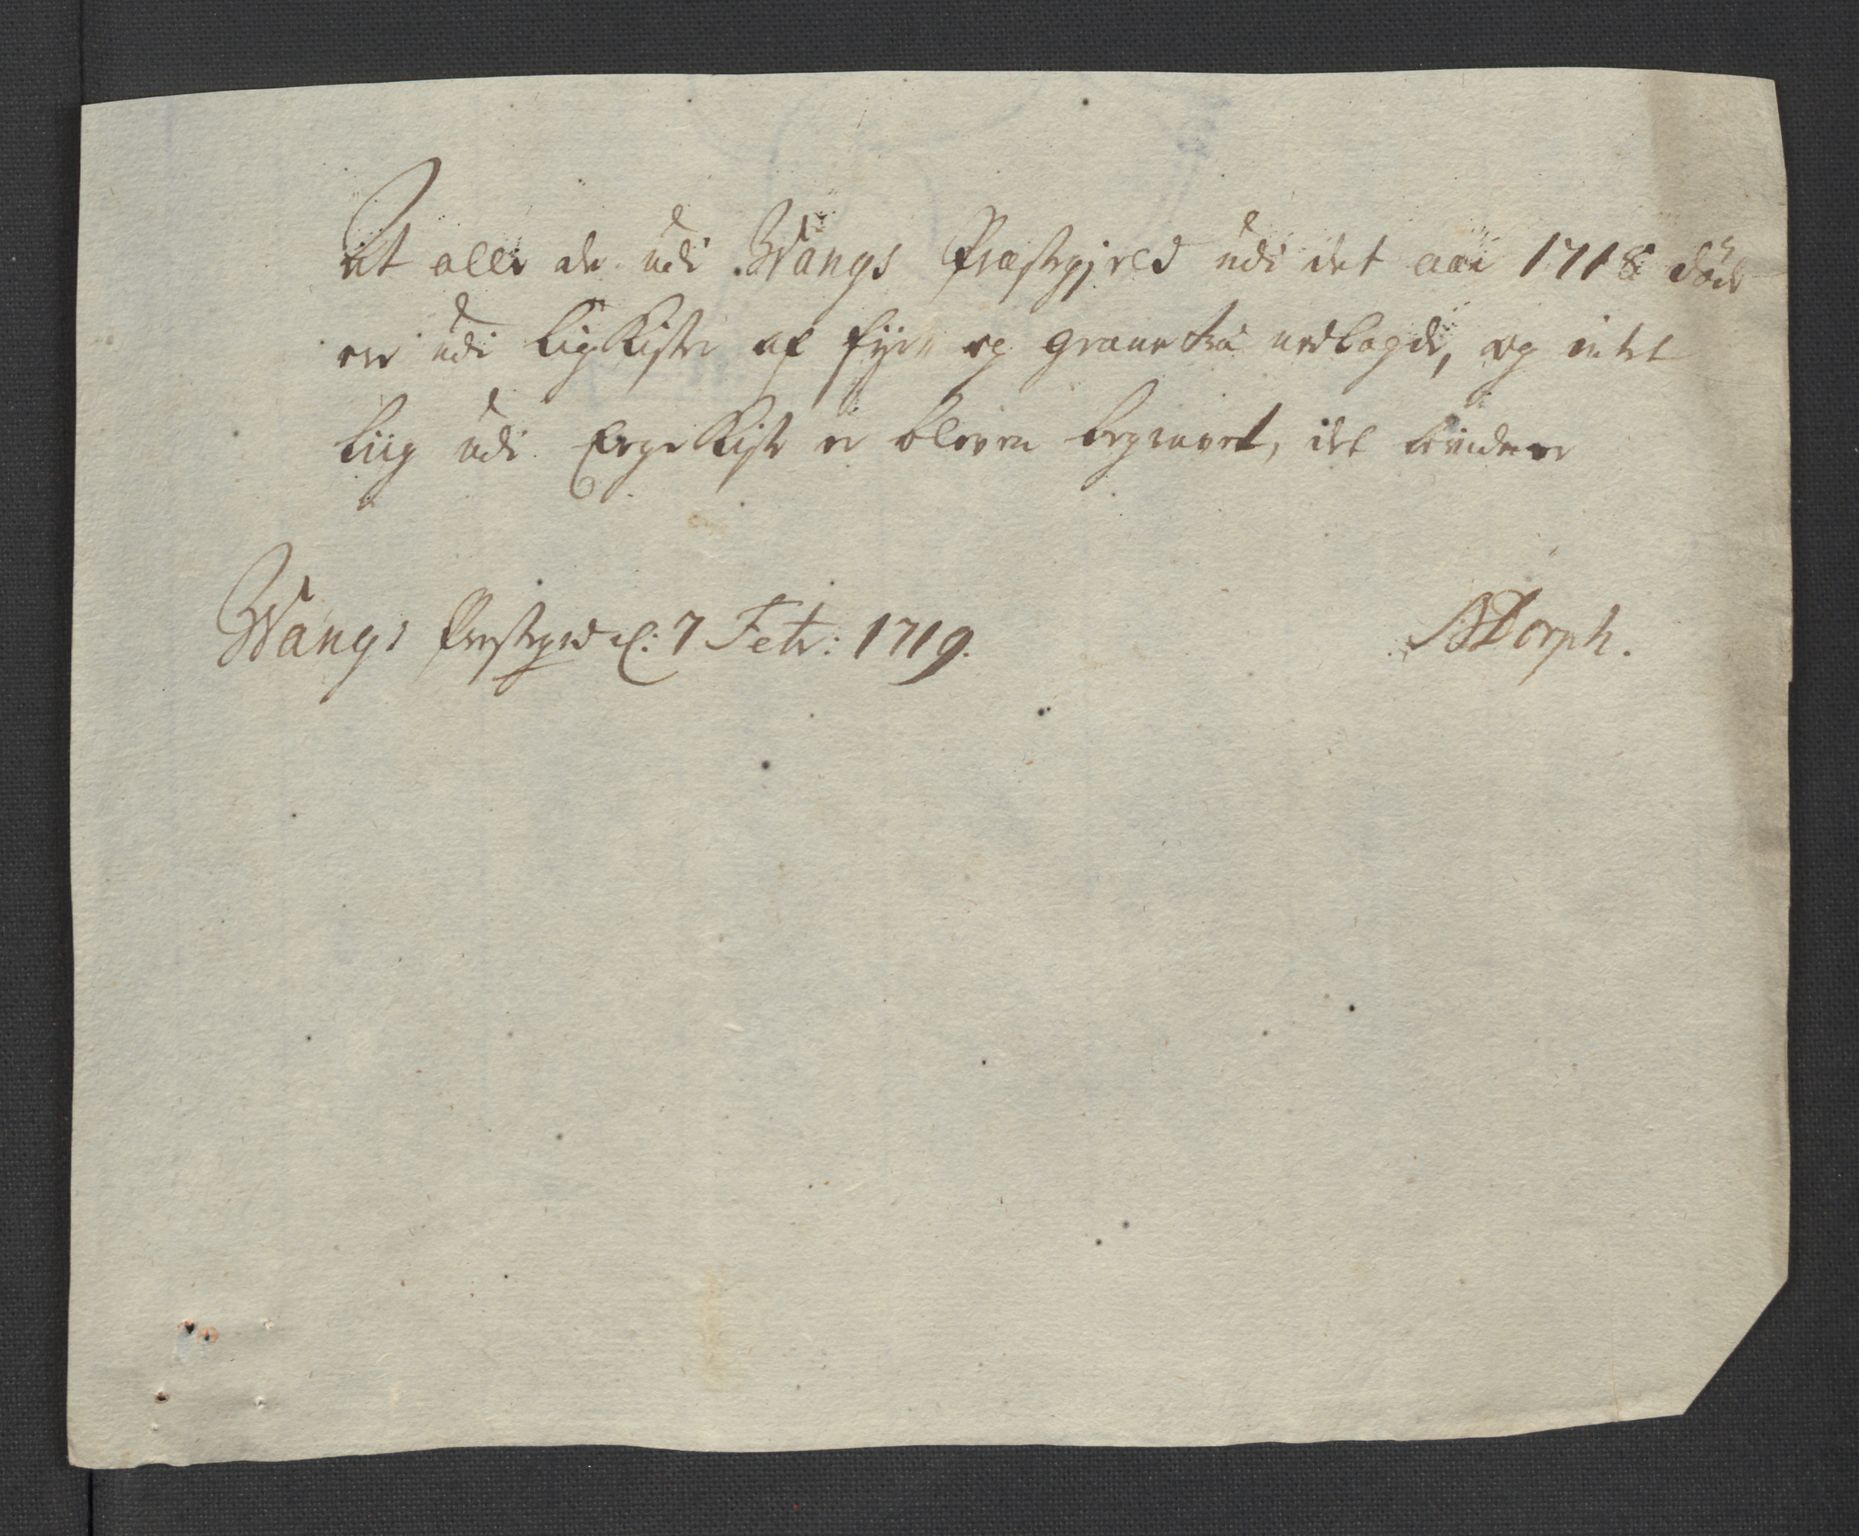 At alle de udi Wangs Præstegjeld udi det aar 1718 døde
ere udi Ligkister af fyrr og grane træ nedlagde, og intet
Liig udi Eege Kiste er bleven begravet, det bevidner
Wangs Prestegrd d: 7 Febr: 1719.
ADorph.